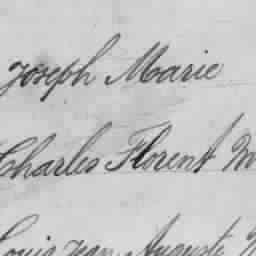 Joseph Marie
Charles Florent
Louis Jean Auguste